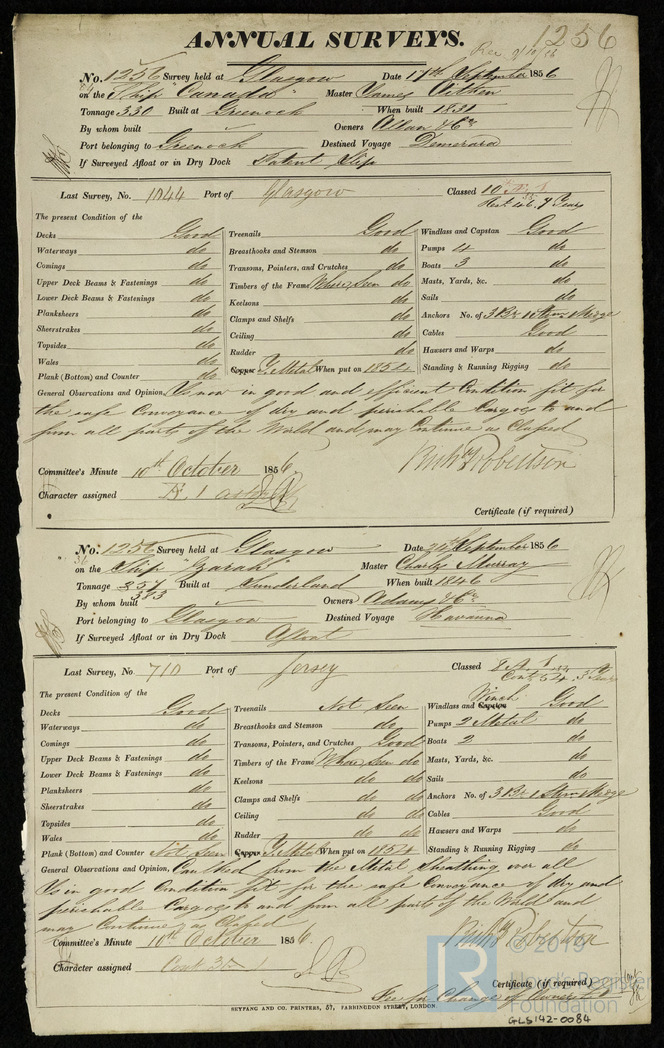 ANNUAL SURVEYS. 1256
No. 1256 Survey held at Glasgow Date 11th September 1856
on the Ship "Canada" Master James Aitken
Tonnage 330 Built at Greenock When built 1831
By whom built Owners Allan & Co
Port belonging to Greenock Destined Voyage Demerara
If Surveyed Afloat or in Dry Dock Patent Slip
Last Survey, No. 1044 Port of Glasgow Classed 10 A.1
Rest. 46. 7 Years
The present Condition of the
Decks Good Treenails Good Windlass and Capstan Good
Waterways do Breasthooks and Stemson do Pumps 4 do
Comings do Transoms, Pointers, and Crutches do Boats 3 do
Upper Deck Beams & Fastenings do Timbers of the Frame Where Seen do Masts, Yards, &c. do
Lower Deck Beams & Fastenings do Keelsons do Sails do
Planksheers do Clamps and Shelfs do Anchors No. of 3 Br 1 Stm 1 Kedge
Sheerstrakes do Ceiling do Cables Good
Topsides do Rudder do Hawsers and Warps do
Wales do Copper Y. Metal When put on 1854 Standing & Running Rigging do
Plank (Bottom) and Counter do
General Observations and Opinion, Is now in good and efficient Condition fit for
the safe Conveyance of dry and perishable Cargoes to and
from all parts of the World and may Continue as Classed
Committee's Minute 10th October 1856. Robertson
Character assigned A 1
Certificate (if required)
No. 1256 Survey held at Glasgow Date 24th September 1856
on the Ship "Zarah" Master Charles Murray
Tonnage 357 Built at Sunderland When built 1846
383
By whom built Owners Adam & Co
Port belonging to Glasgow Destined Voyage Havanna
If Surveyed Afloat or in Dry Dock Afloat
Last Survey, No. 710 Port of Jersey Classed 8 A.1
Cont. 54. 3 Years
The present Condition of the Winch
Decks Good Treenails Not Seen Windlass and Capstan Good
Waterways do Breasthooks and Stemson do Pumps 2 Metal do
Comings do Transoms, Pointers, and Crutches Good Boats 2 do
Upper Deck Beams & Fastenings do Timbers of the Frame Where Seen do Masts, Yards, &c. do
Lower Deck Beams & Fastenings do Keelsons do do Sails do
Planksheers do Clamps and Shelfs do do Anchors No. of 3 Br 1 Stm 1 Kedge
Sheerstrakes do Ceiling do do Cables Good
Topsides do Rudder do do Hawsers and Warps do
Wales do Copper Y. Metal When put on 1854 Standing & Running Rigging do
Plank (Bottom) and Counter Not Seen
General Observations and Opinion, Caulked from the Metal Sheathing over all
Is in good Condition fit for the safe Conveyance of dry and
perishable Cargoes to and from all parts of the World and
may Continue as Classed
Committee's Minute 10th October 1856. Robertson
Character assigned Cont 3
Certificate (if required)
Fee for Change of Owners
SEYFANG AND CO. PRINTERS, 57, FARRINGDON STREET, LONDON.
© 2019
Lloyd's Register
Foundation
GLS142-0084